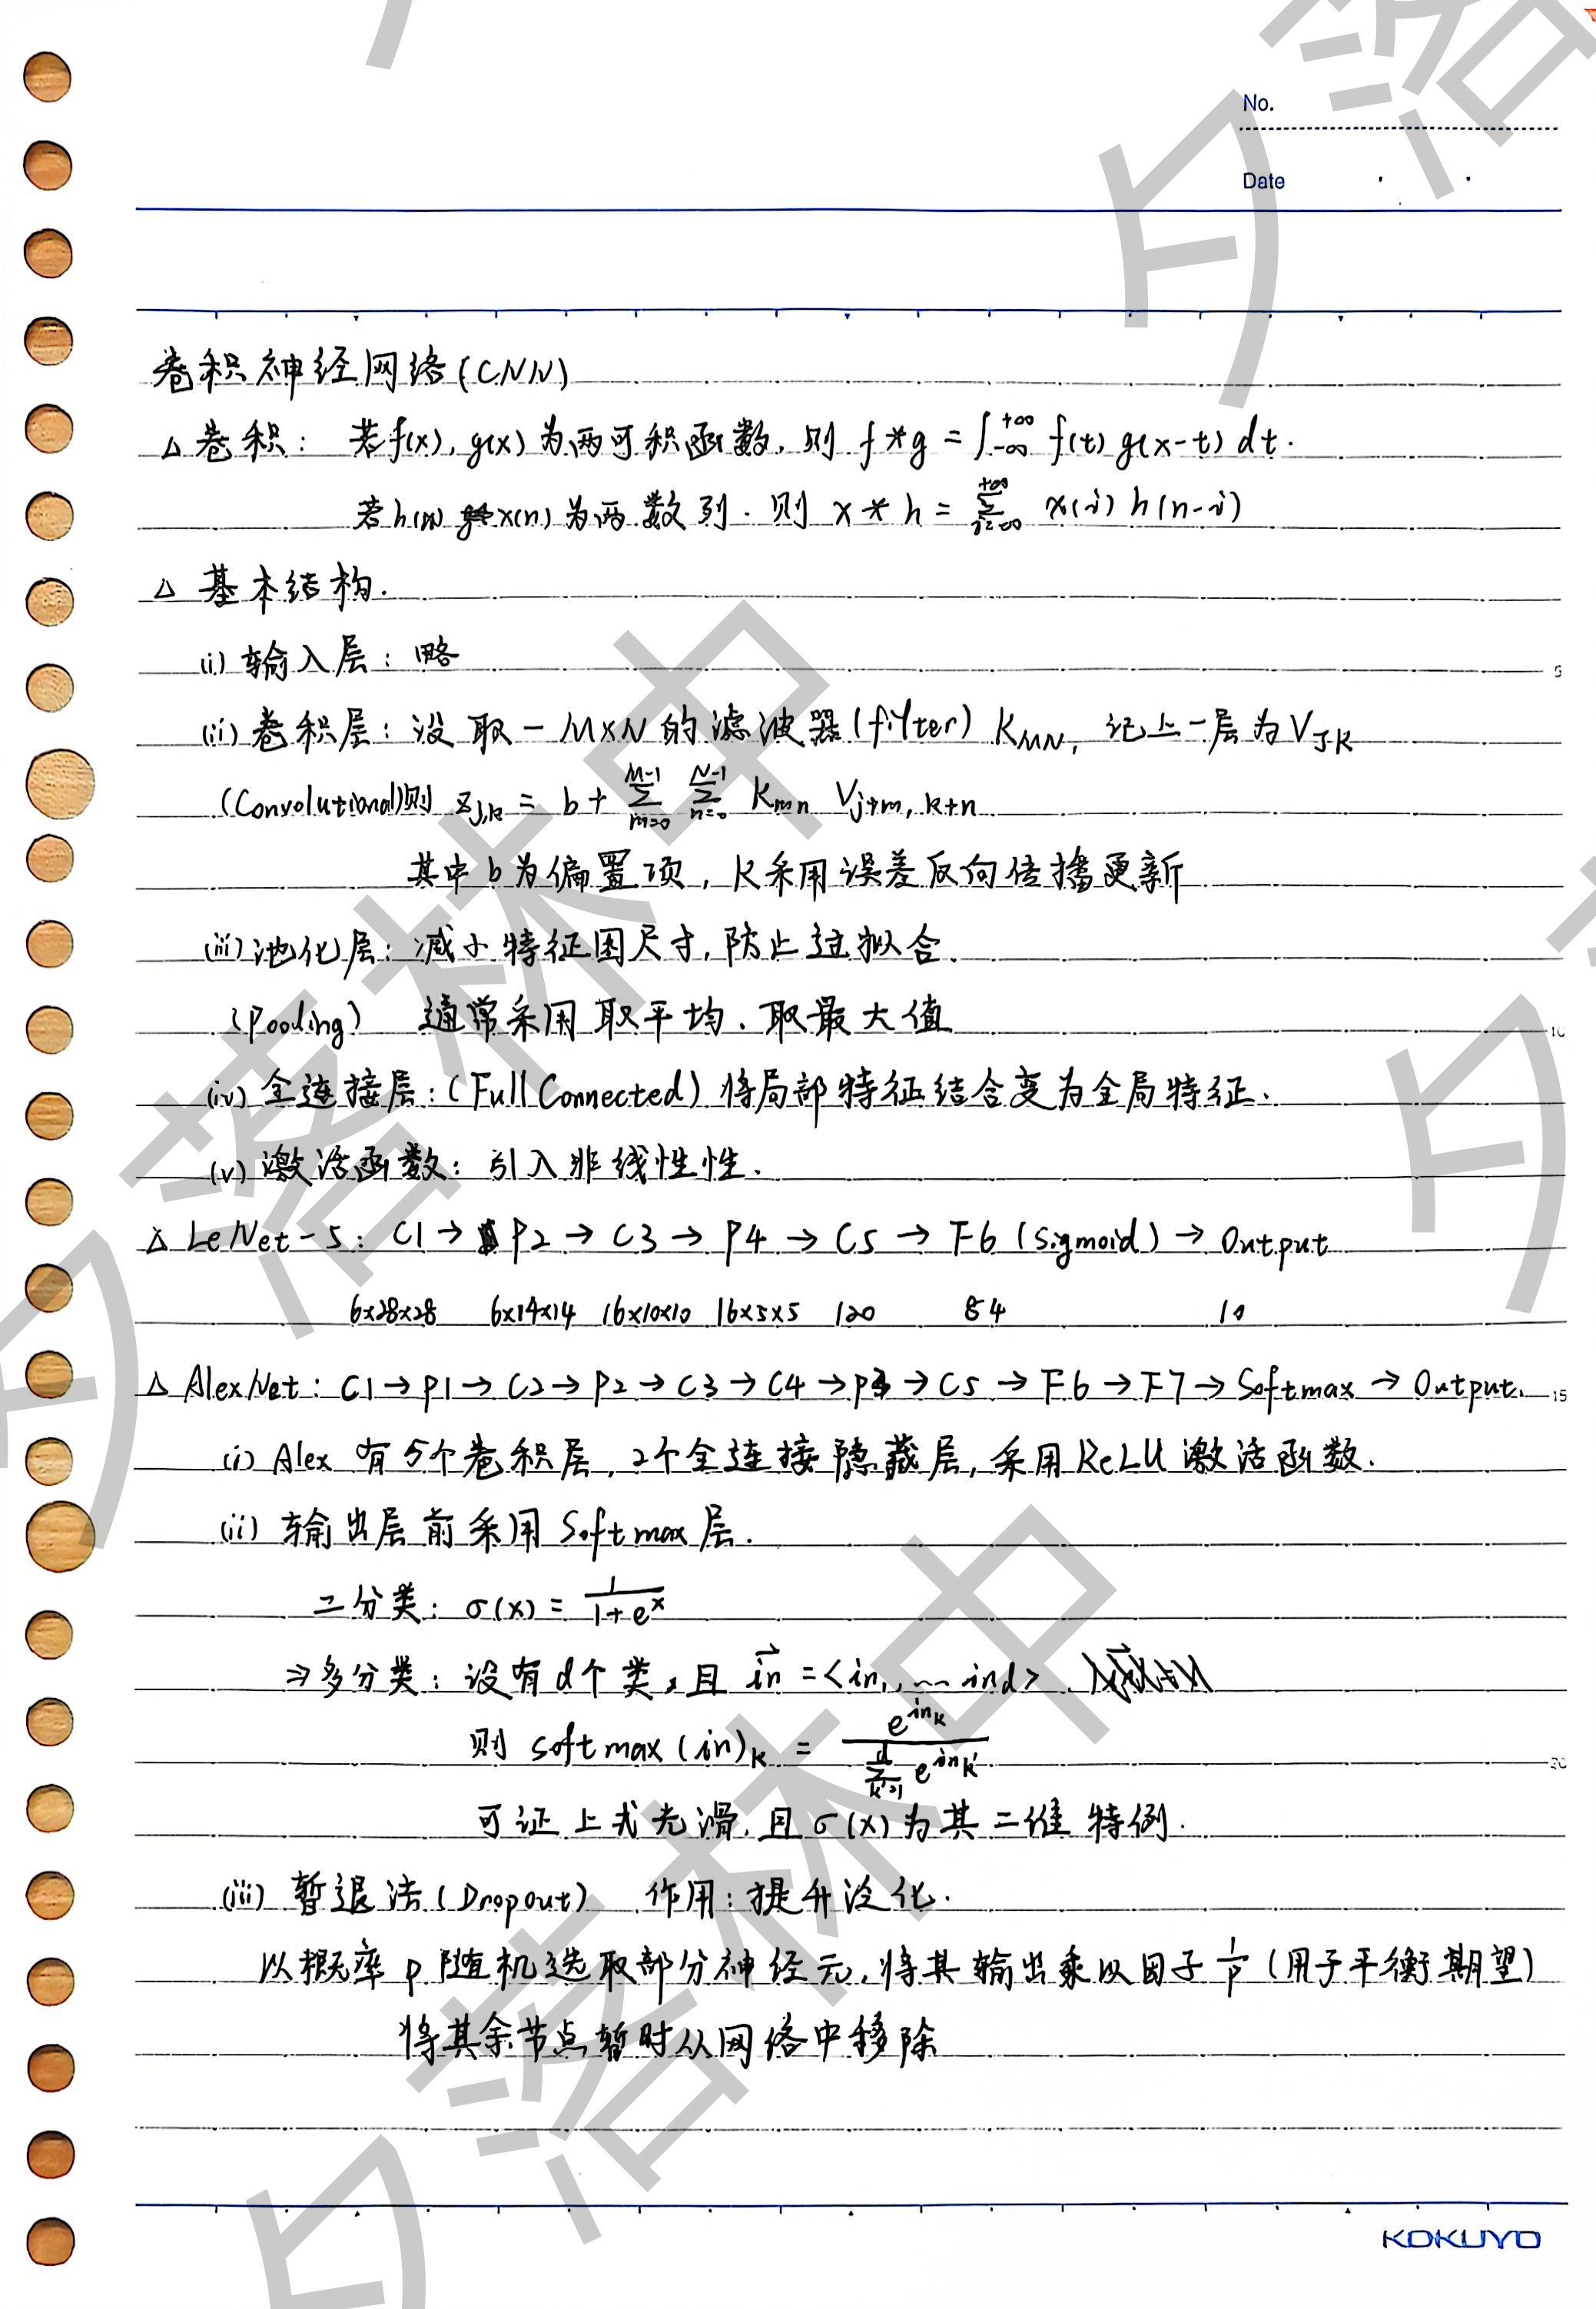 No.
Date
卷积神经网络(CNN)
△ 卷积: 若f(x), g(x)为两可积函数, 则 f*g = ∫_{-∞}^{+∞} f(t) g(x-t) dt.
若h(n) x(n)为两数列. 则 x*h = Σ_{i=-∞}^{+∞} x(i) h(n-i)
△ 基本结构.
(i) 输入层: 略
(ii) 卷积层: 设取一M×N的滤波器(filter) K_{MN}, 记上一层为V_{JK}
(Convolutional)则 z_{j,k} = b + Σ_{m=0}^{M-1} Σ_{n=0}^{N-1} K_{mn} V_{j+m, k+n}
其中b为偏置项, K采用误差反向传播更新
(iii) 池化层: 减小特征图尺寸, 防止过拟合.
(Pooling) 通常采用取平均、取最大值
(iv) 全连接层: (Full Connected) 将局部特征结合变为全局特征.
(v) 激活函数: 引入非线性性.
△ LeNet-5: C1 → P2 → C3 → P4 → C5 → F6 (Sigmoid) → Output
6×28×28 6×14×14 16×10×10 16×5×5 120 84 10
△ AlexNet: C1→P1→C2→P2→C3→C4→P3→C5→F6→F7→Softmax→Output.
(i) Alex 有5个卷积层, 2个全连接隐藏层, 采用ReLU激活函数.
(ii) 输出层前采用Softmax层.
二分类: σ(x) = 1/(1+e^x)
⇒多分类: 设有d个类, 且 \vec{in} = <in_1, … in_d>
则 softmax(in)_k = e^{in_k} / Σ_{k'=1}^{d} e^{in_k'}
可证上式光滑, 且σ(x)为其二维特例.
(iii) 暂退法(Dropout) 作用: 提升泛化.
以概率p随机选取部分神经元, 将其输出乘以因子 1/p (用于平衡期望)
将其余节点暂时从网络中移除
KOKUYO
夕落林中
夕落林中
夕落
夕落